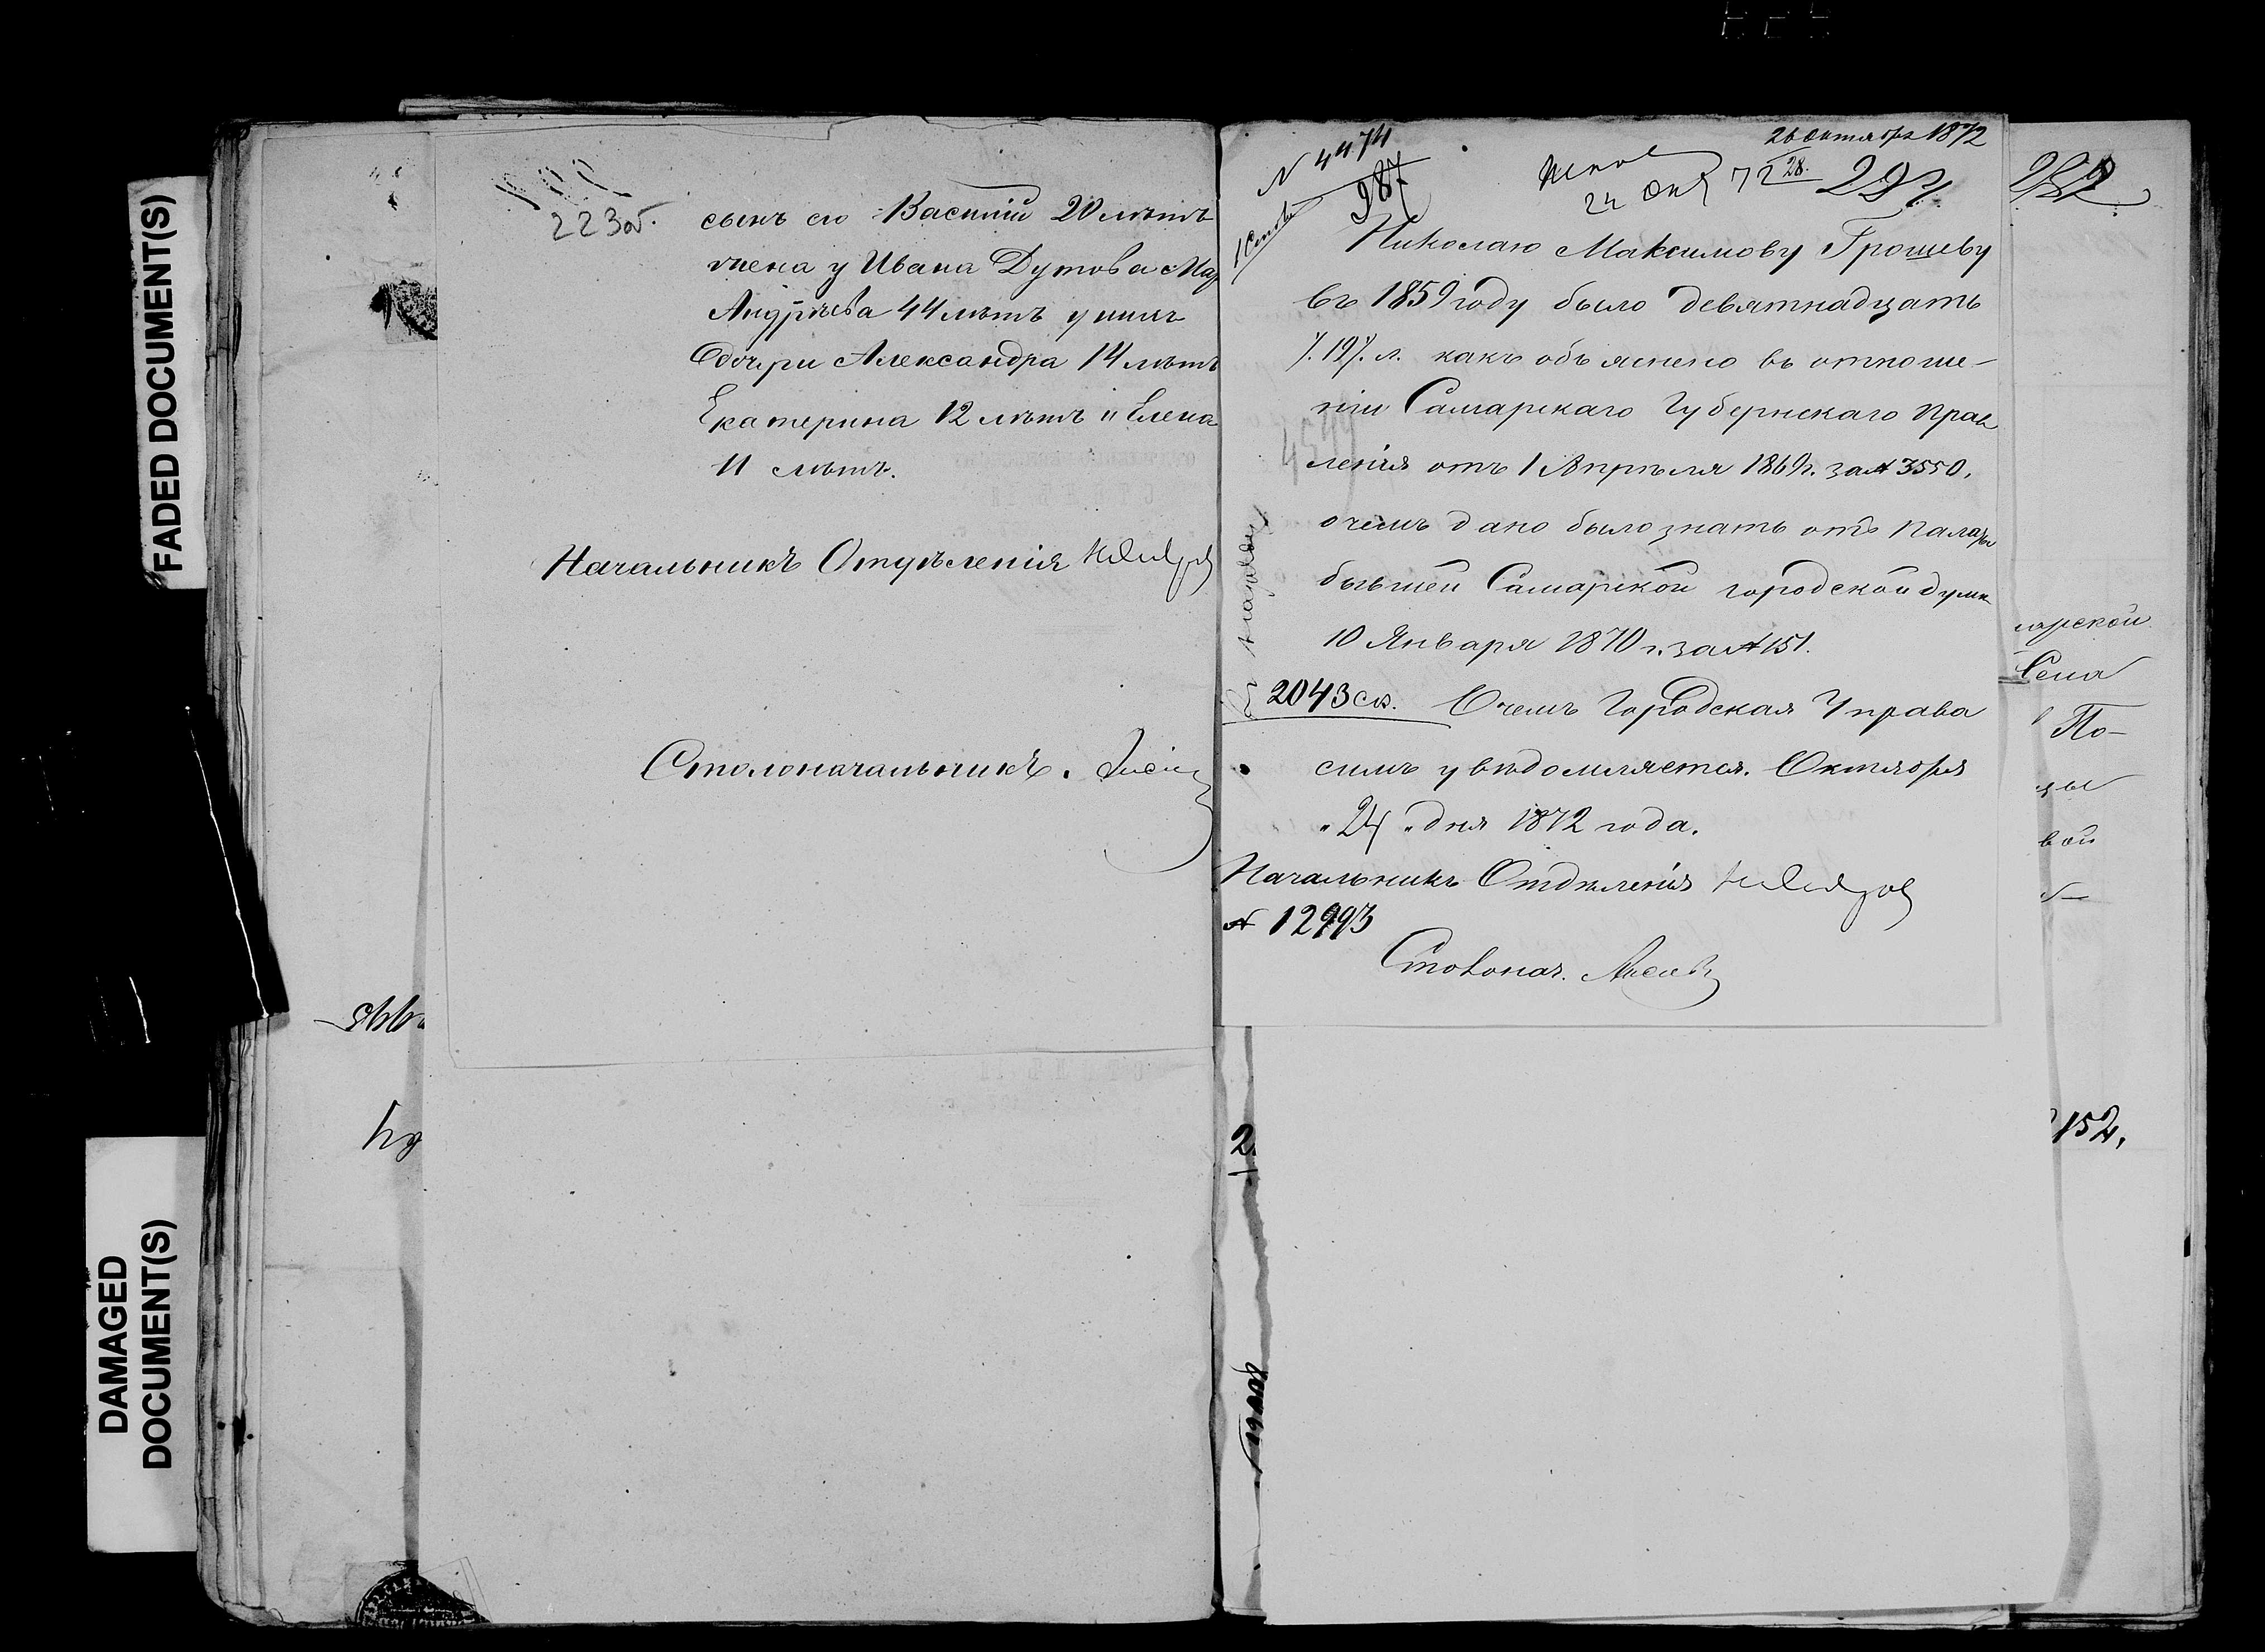 FADED DOCUMENT(S)
DAMAGED
DOCUMENT(S)
223об.
сынъ его Василій 20 лѣтъ
жена у Ивана Дутова Мар
Андрѣева 44 лѣтъ у нихъ
дочери Александра 14 лѣтъ
Екатерина 12 лѣтъ и Елена
11 лѣтъ.
Начальникъ Отдѣленія
Столоначальникъ.
N 4474
987
26 Октября 1872
24 Окт 72 28.
Николаю Максимову Грошеву
въ 1859 году было девятнадцать
/. 19/. л. какъ объяснено въ отноше-
ніи Самарскаго Губернскаго Прав
ленія отъ 1 Апрѣля 1869г. за № 3550.
о чемъ дано было знать отъ Палаты
бывшей Самарской городской думѣ
10 Января 1870 г. за № 151.
2043 св. О чемъ Городская Управа
симъ увѣдомляется. Октября
"24" дня 1872 года.
Начальникъ Отдѣленія
№ 12993
Столонач.
4599
рской
Села
По-
вой
152.
2.